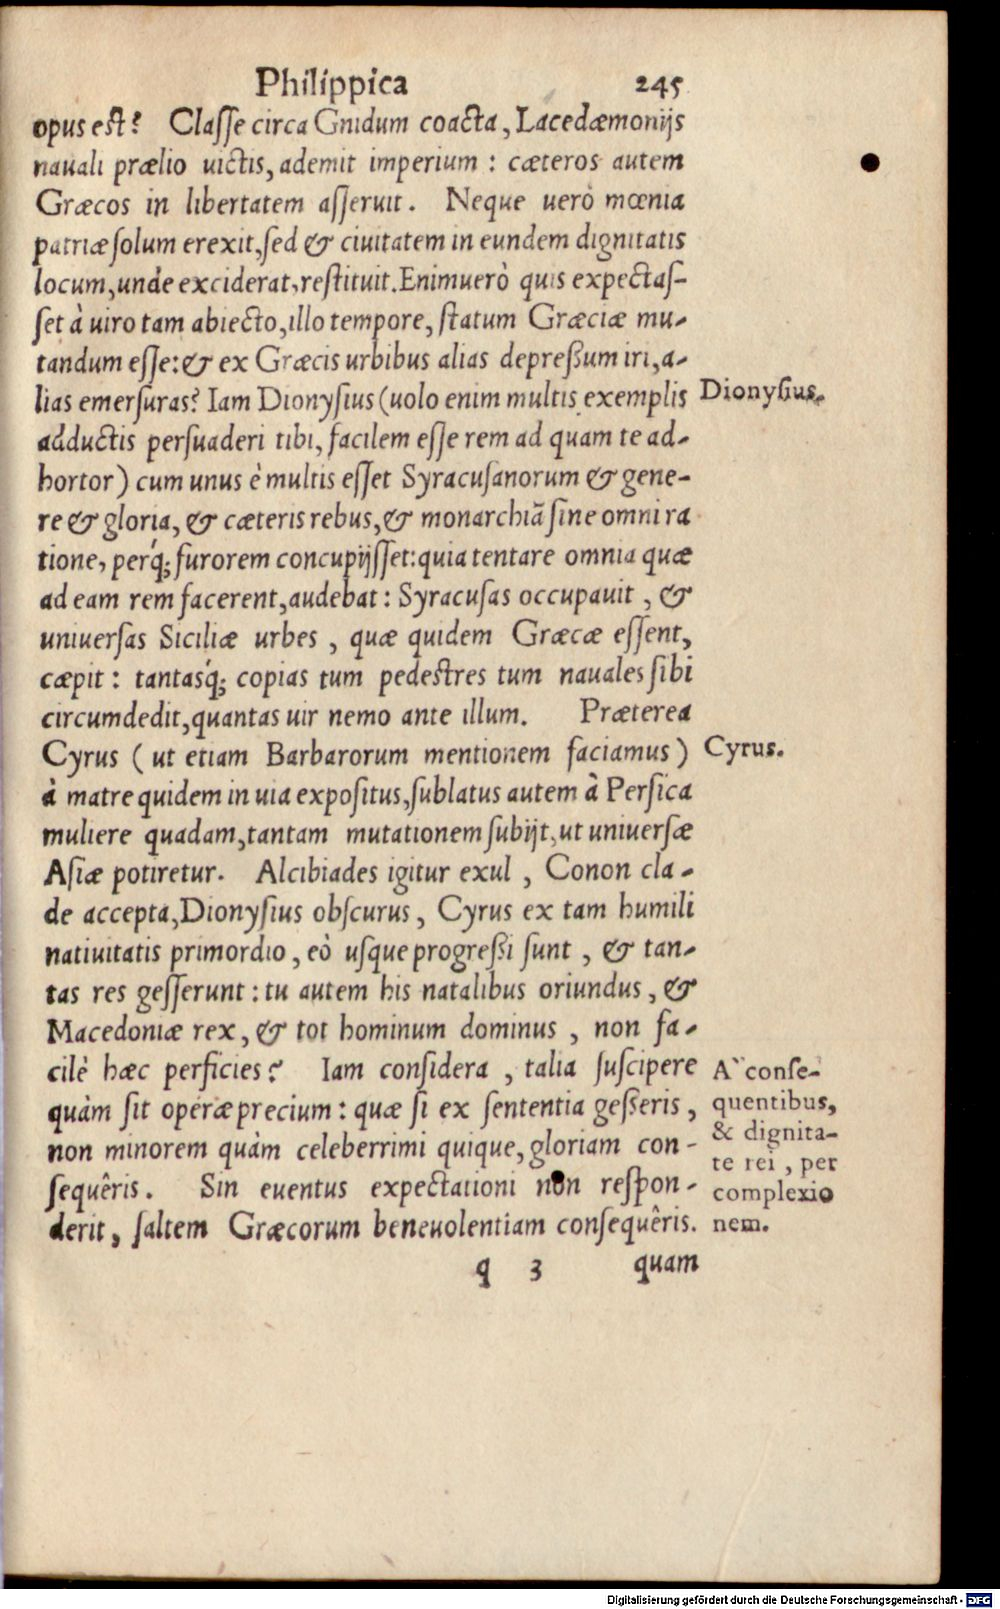 Philippica 245
opus est? Claſſe circa Gnidum coacta, Lacedæmonijs
nauali prælio uictis, ademit imperium : cæteros autem
Græcos in libertatem aſſeruit. Neque uerò mœnia
patriæ ſolum erexit, ſed & ciuitatem in eundem dignitatis
locum, unde exciderat, reſtituit. Enimuerò quis expectaſ-
ſet à uiro tam abiecto, illo tempore, ſtatum Græciæ mu-
tandum eſſe: & ex Græcis urbibus alias depreßum iri, a-
lias emerſuras? Iam Dionyſius (uolo enim multis exemplis
Dionyſius.
adductis perſuaderi tibi, facilem eſſe rem ad quam te ad-
hortor) cum unus è multis eſſet Syracuſanorum & gene-
re & gloria, & cæteris rebus, & monarchiã ſine omni ra
tione, perq́; furorem concupijſſet: quia tentare omnia quæ
ad eam rem facerent, audebat: Syracuſas occupauit, &
uniuerſas Siciliæ urbes, quæ quidem Græcæ eſſent,
cæpit: tantasq́; copias tum pedeſtres tum nauales ſibi
circumdedit, quantas uir nemo ante illum. Præterea
Cyrus (ut etiam Barbarorum mentionem faciamus)
Cyrus.
à matre quidem in uia expoſitus, ſublatus autem à Perſica
muliere quadam, tantam mutationem ſubijt, ut uniuerſæ
Aſiæ potiretur. Alcibiades igitur exul, Conon cla-
de accepta, Dionyſius obſcurus, Cyrus ex tam humili
natiuitatis primordio, eò uſque progreßi ſunt, & tan-
tas res geſſerunt: tu autem his natalibus oriundus, &
Macedoniæ rex, & tot hominum dominus, non fa-
cilè hæc perficies? Iam conſidera, talia ſuſcipere
quàm ſit operæprecium: quæ ſi ex ſententia geßeris,
non minorem quàm celeberrimi quique, gloriam con-
ſequêris. Sin euentus expectationi non reſpon-
derit, ſaltem Græcorum beneuolentiam conſequêris.
A` conſe-
quentibus,
& dignita-
te rei, per
complexio
nem.
q 3 quam
Digitalisierung gefördert durch die Deutsche Forschungsgemeinschaft - DFG